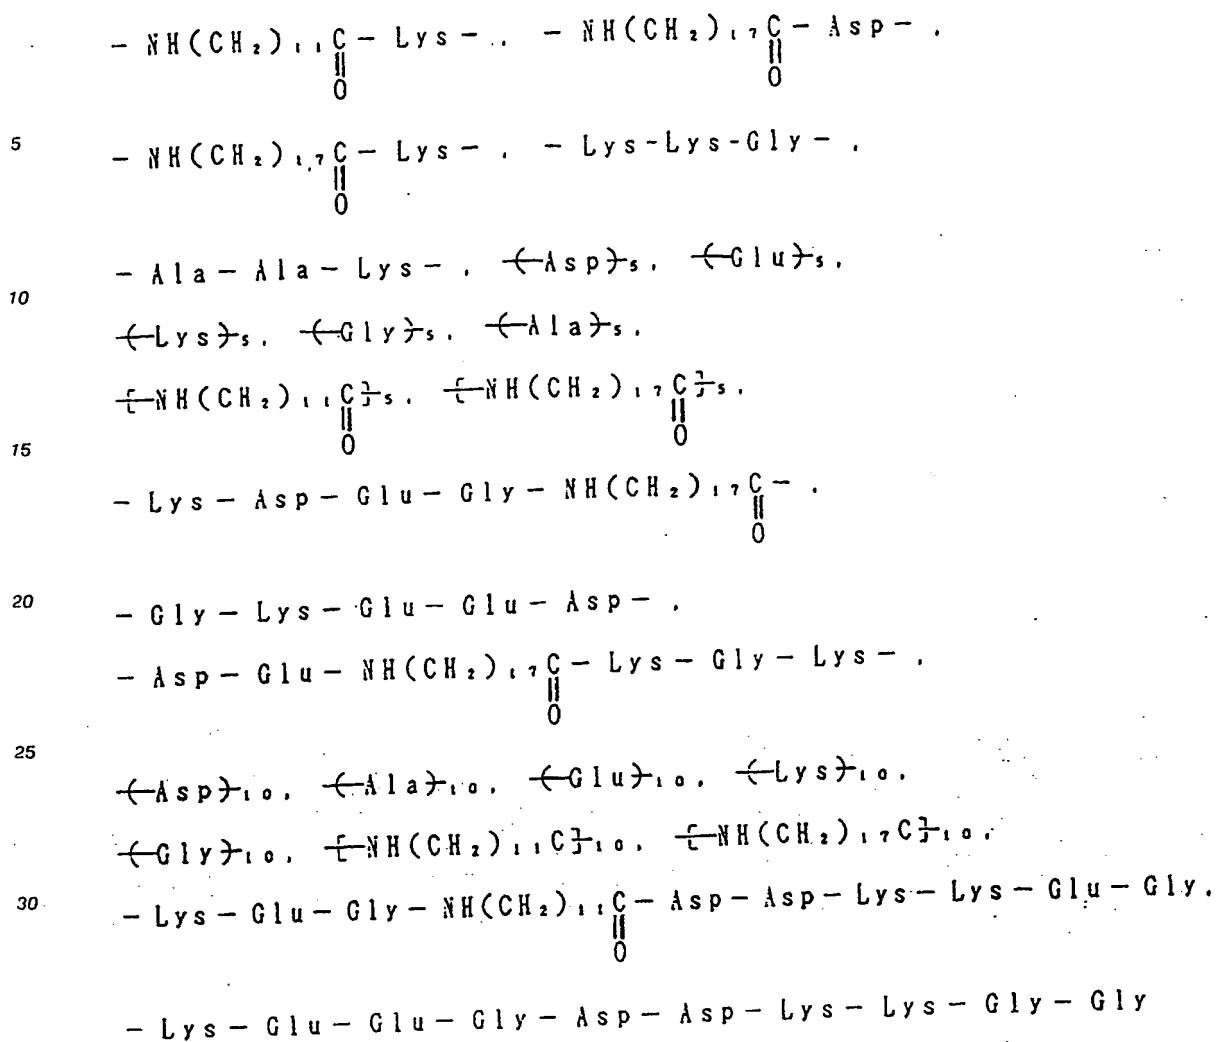 - NH(CH₂)₁₁C - Lys - , - NH(CH₂)₁₇C - Asp - ,
O O
5 - NH(CH₂)₁₇C - Lys - , - Lys-Lys-Gly - ,
O
- Ala - Ala - Lys - , (Asp)₅, (Glu)₅,
10
(Lys)₅, (Gly)₅, (Ala)₅,
[NH(CH₂)₁₁C]₅, [NH(CH₂)₁₇C]₅,
O O
15
- Lys - Asp - Glu - Gly - NH(CH₂)₁₇C - ,
O
20 - Gly - Lys - Glu - Glu - Asp - ,
- Asp - Glu - NH(CH₂)₁₇C - Lys - Gly - Lys - ,
O
25
(Asp)₁₀, (Ala)₁₀, (Glu)₁₀, (Lys)₁₀,
(Gly)₁₀, [NH(CH₂)₁₁C]₁₀, [NH(CH₂)₁₇C]₁₀,
30 - Lys - Glu - Gly - NH(CH₂)₁₁C - Asp - Asp - Lys - Lys - Glu - Gly,
O
- Lys - Glu - Glu - Gly - Asp - Asp - Lys - Lys - Gly - Gly